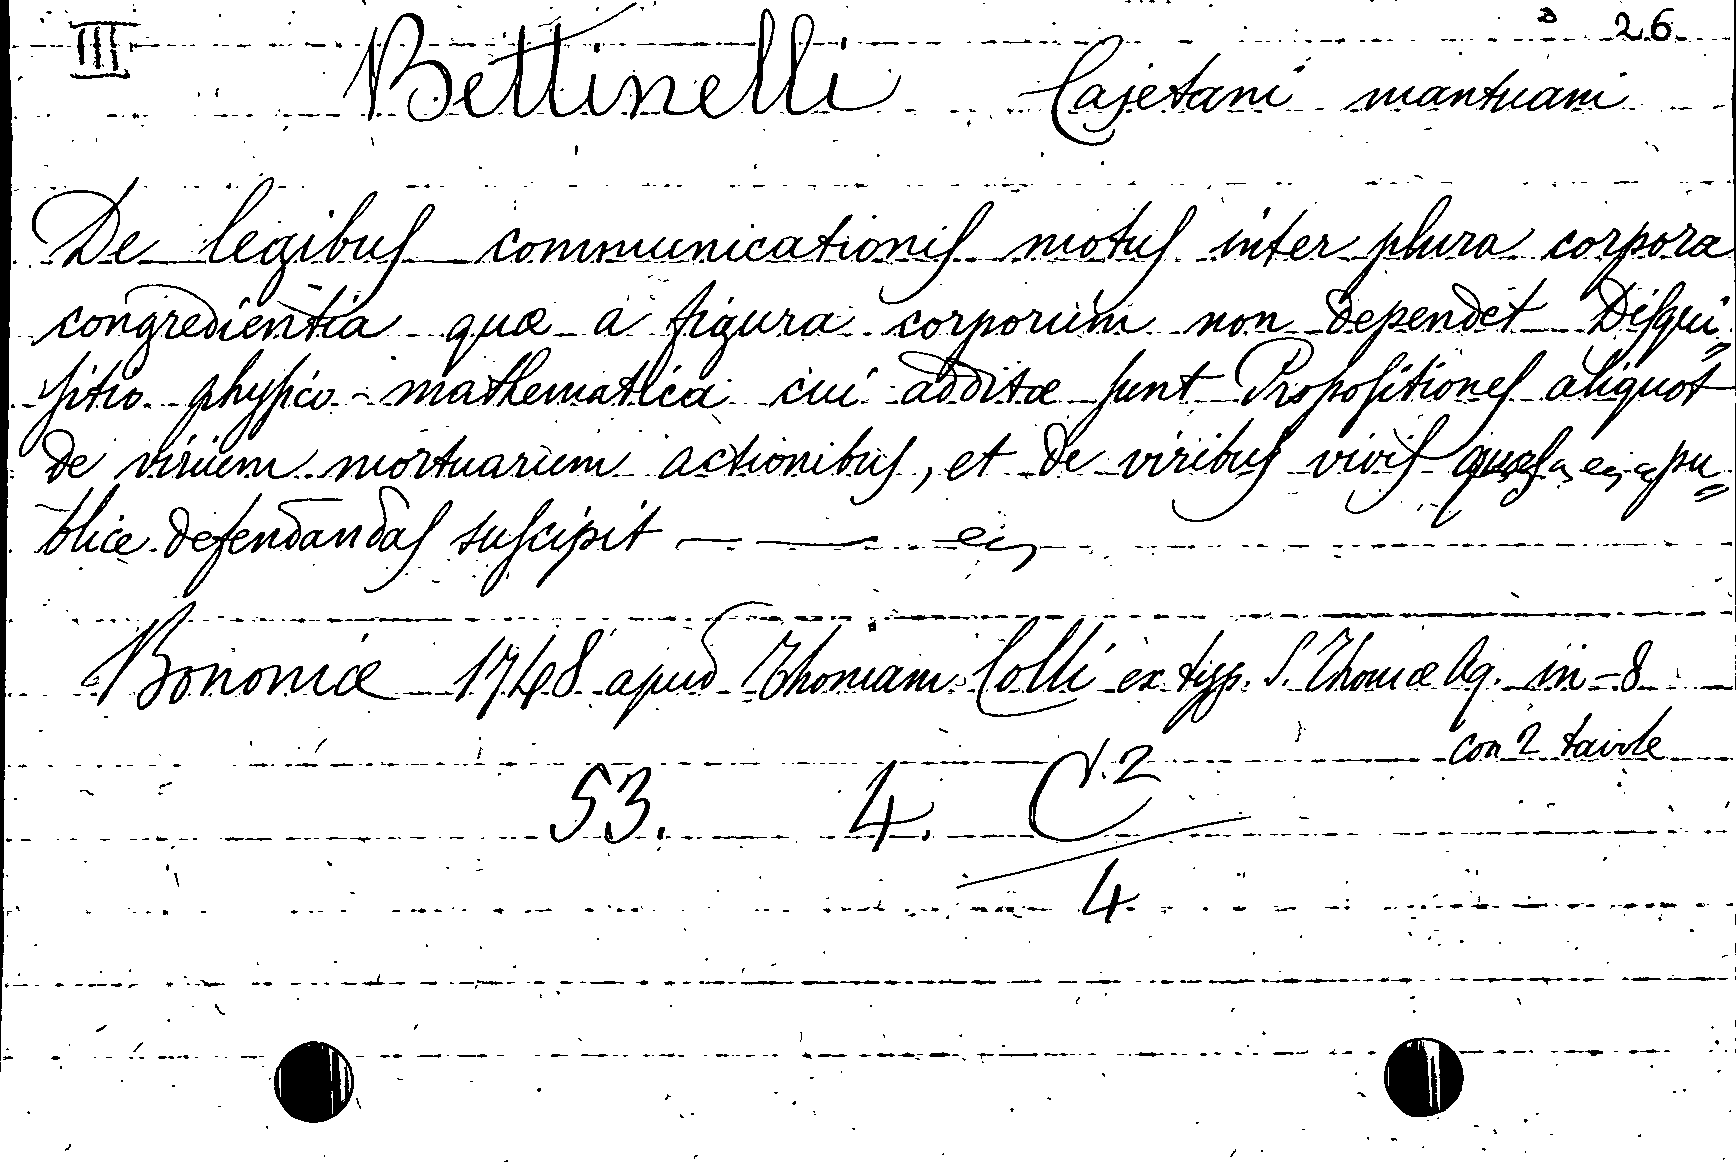 III 26
Bettinelli Cajetani mantuani
De legibus communicationis motus inter plura corpora
congredientia quæ a figura corporum non dependet Disqui„
sitio physico-mathematica cui additæ sunt Propositiones aliquot
de virium mortuarum actionibus, et de viribus vivis quas pu„
blice defendandas suscipit
Bononiæ 1748 apud Thomam Colli ex typ. S. Thomæ Aq. in-8
con 2 tavole
53. 4. C V. 2
4